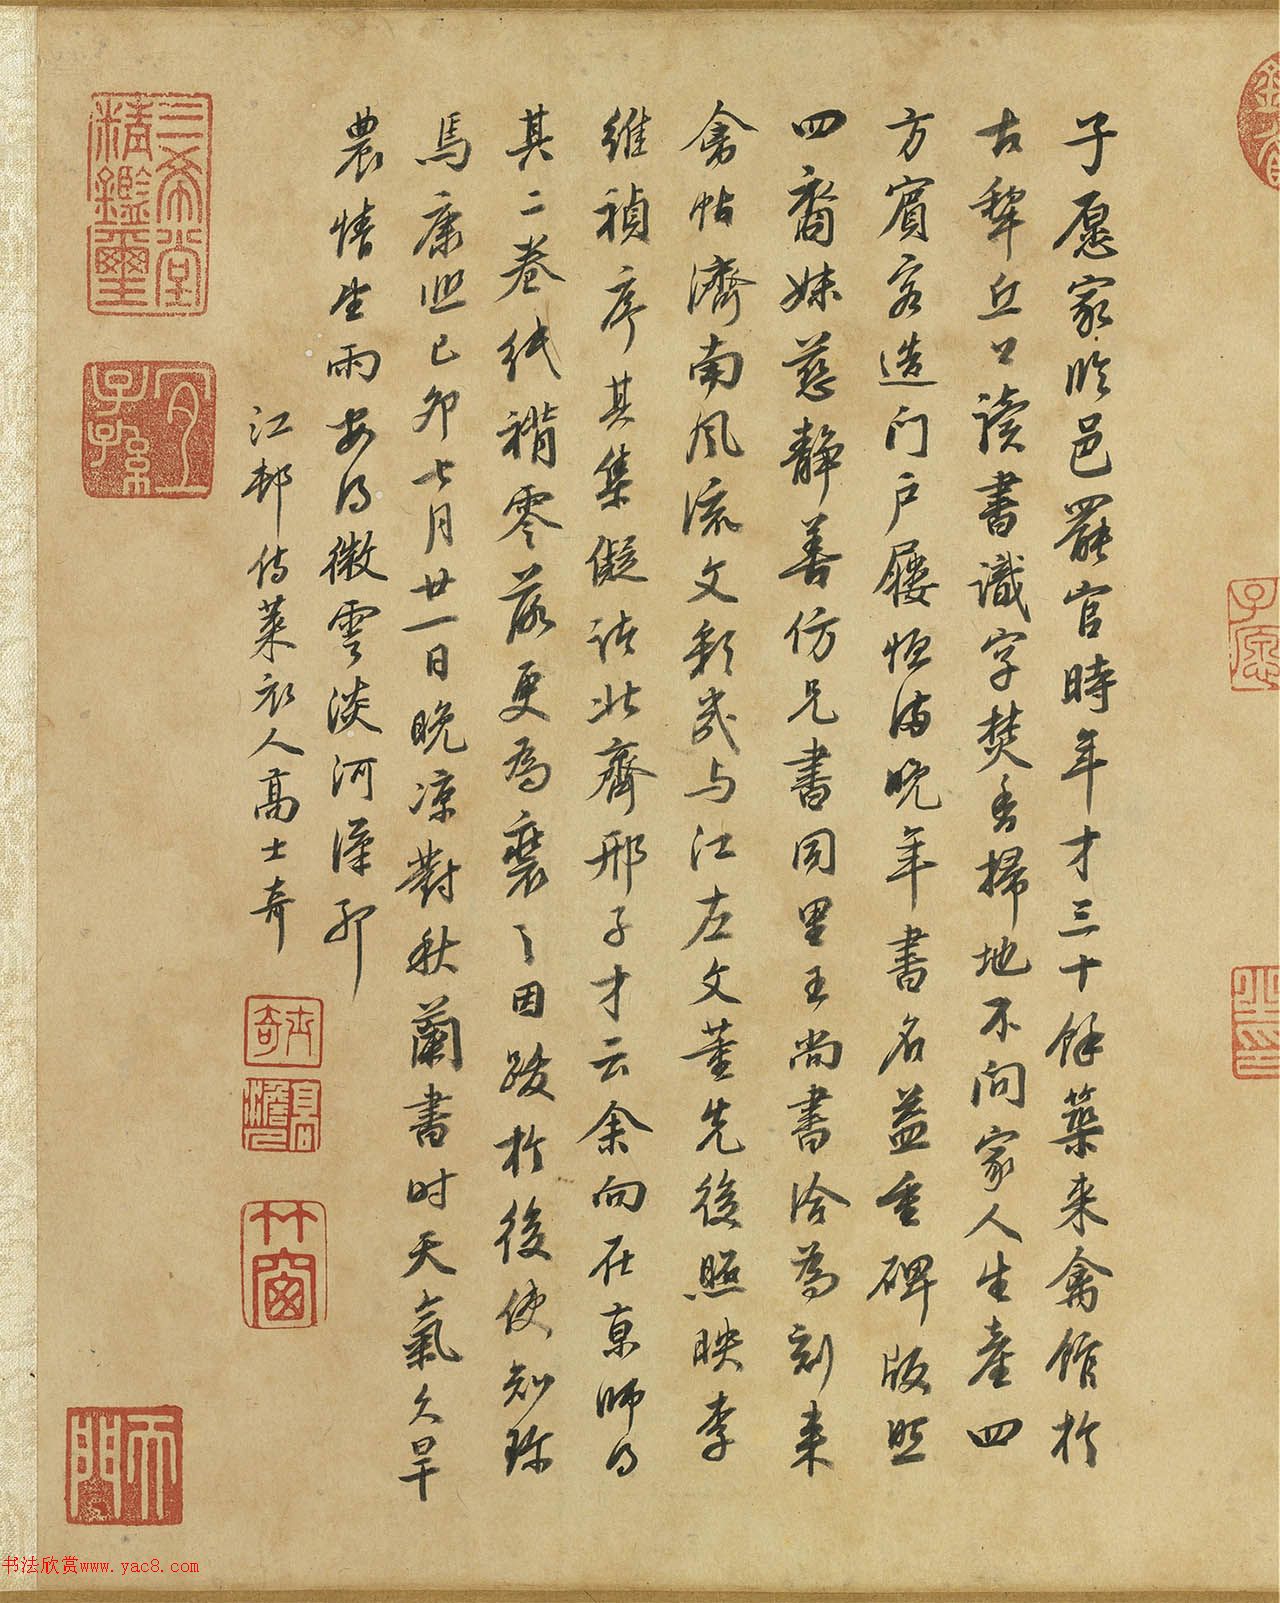 子愿家临邑罷官時年才三十餘築来禽館扵
古犂丘上讀書識字焚香掃地不问家人生產四
方賓客造门户屨恒满晚年書名益重碑版照
四裔妹慈静善仿兄書同里王尚書洽為刻来
禽帖濟南風流文彩幾与江左文董先後照映李
維禎序其集儗諸北齊邢子才云余向在京師得
其二卷紙褙零落更為裝之因跋扵後使知珍
焉康熙己卯七月廿一日晚凉對秋蘭書时天氣久旱
農情望雨安得微雲淡河漢耶
江邨侍萊衣人高士奇
三希堂精鑑璽
宜子孫
士奇
高澹人
竹窗
子愿
书法欣赏www.yac8.com